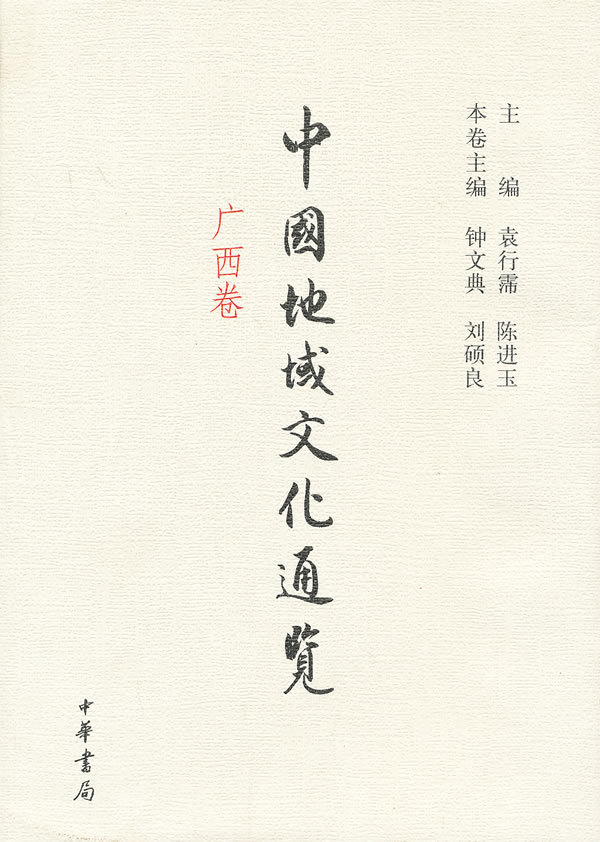 主编 袁行霈 陈进玉
本卷主编 钟文典 刘硕良
中國地域文化通覽
广西卷
中華書局